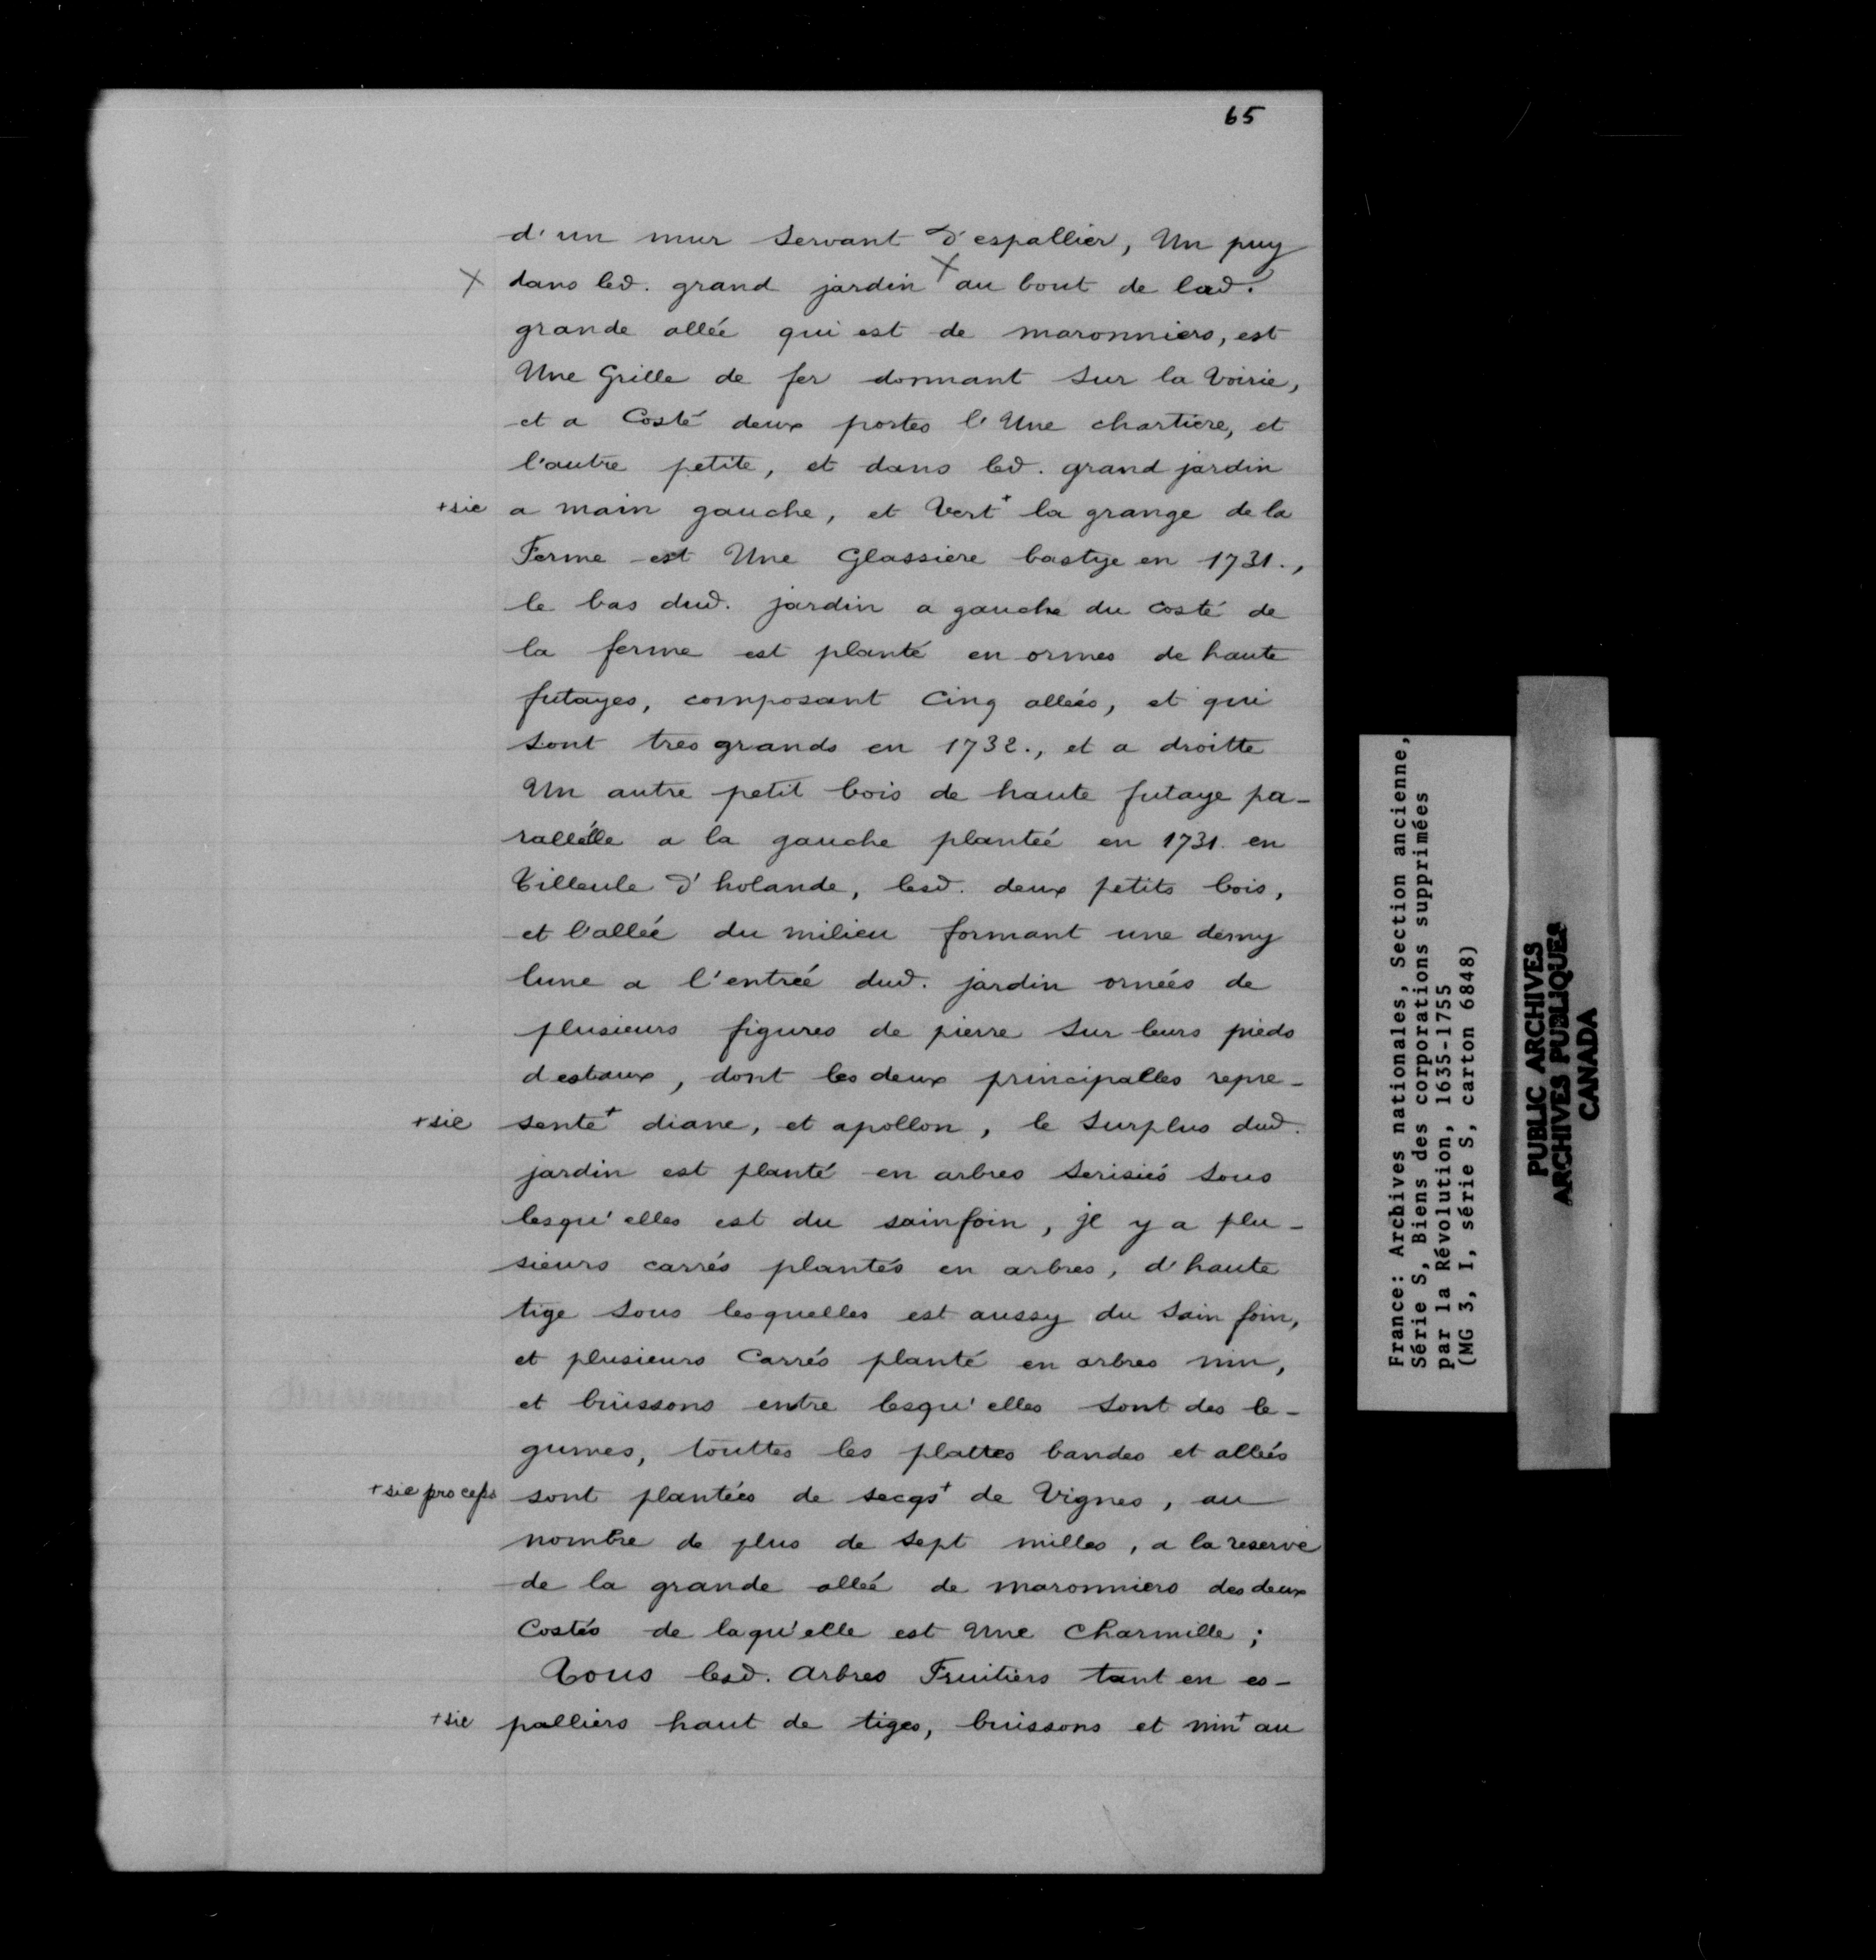 65
d'un mur servant d'espallier, Un puy
X dans led. grand jardin X au bout de lad.
grande allée qui est de maronniers, est
Une Grille de fer donnant sur la Voirie,
et a Costé deux portes l'Une chartiere, et
l'autre petite, et dans led. grand jardin
+sic a main gauche, et Vert+ la grange de la
Ferme est Une Glassiere bastye en 1731.,
le bas dud. jardin a gauche du costé de
la ferme est planté en ormes de haute
futayes, composant Cinq alleés, et qui
sont tres grands en 1732., et a droitte
Un autre petit bois de haute futaye pa-
rallélle a la gauche planteé en 1731. en
Tilleule d'holande, lesd. deux petits bois,
et l'alleé du milieu formant une demy
lune a l'entreé dud. jardin orneés de
plusieurs figures de pierre sur leurs pieds
destaux, dont les deux principalles repre-
+sic sente+ diane, et apollon, le surplus dud.
jardin est planté en arbres serisiés sous
lesqu'elles est du sainfoin, jl y a plu-
sieurs carrés plantés en arbres, d'haute
tige sous lesquelles est aussy du sain foin,
et plusieurs Carrés planté en arbres nin,
et buissons entre lesqu'elles sont des le-
gumes, touttes les plattes bandes et alleés
+sic pro ceps sont plantées de secqs+ de Vignes, au
nombre de plus de sept milles, a la reserve
de la grande alleé de maronniers des deux
Costés de laqu'elle est Une Charmille ;
Tous lesd. Arbres Fruitiers tant en es-
+sic palliers haut de tiges, buissons et nin+ au
France: Archives nationales, Section ancienne,
Série S, Biens des corporations supprimées
par la Révolution, 1635-1755
(MG 3, I, série S, carton 6848)
PUBLIC ARCHIVES
ARCHIVES PUBLIQUES
CANADA